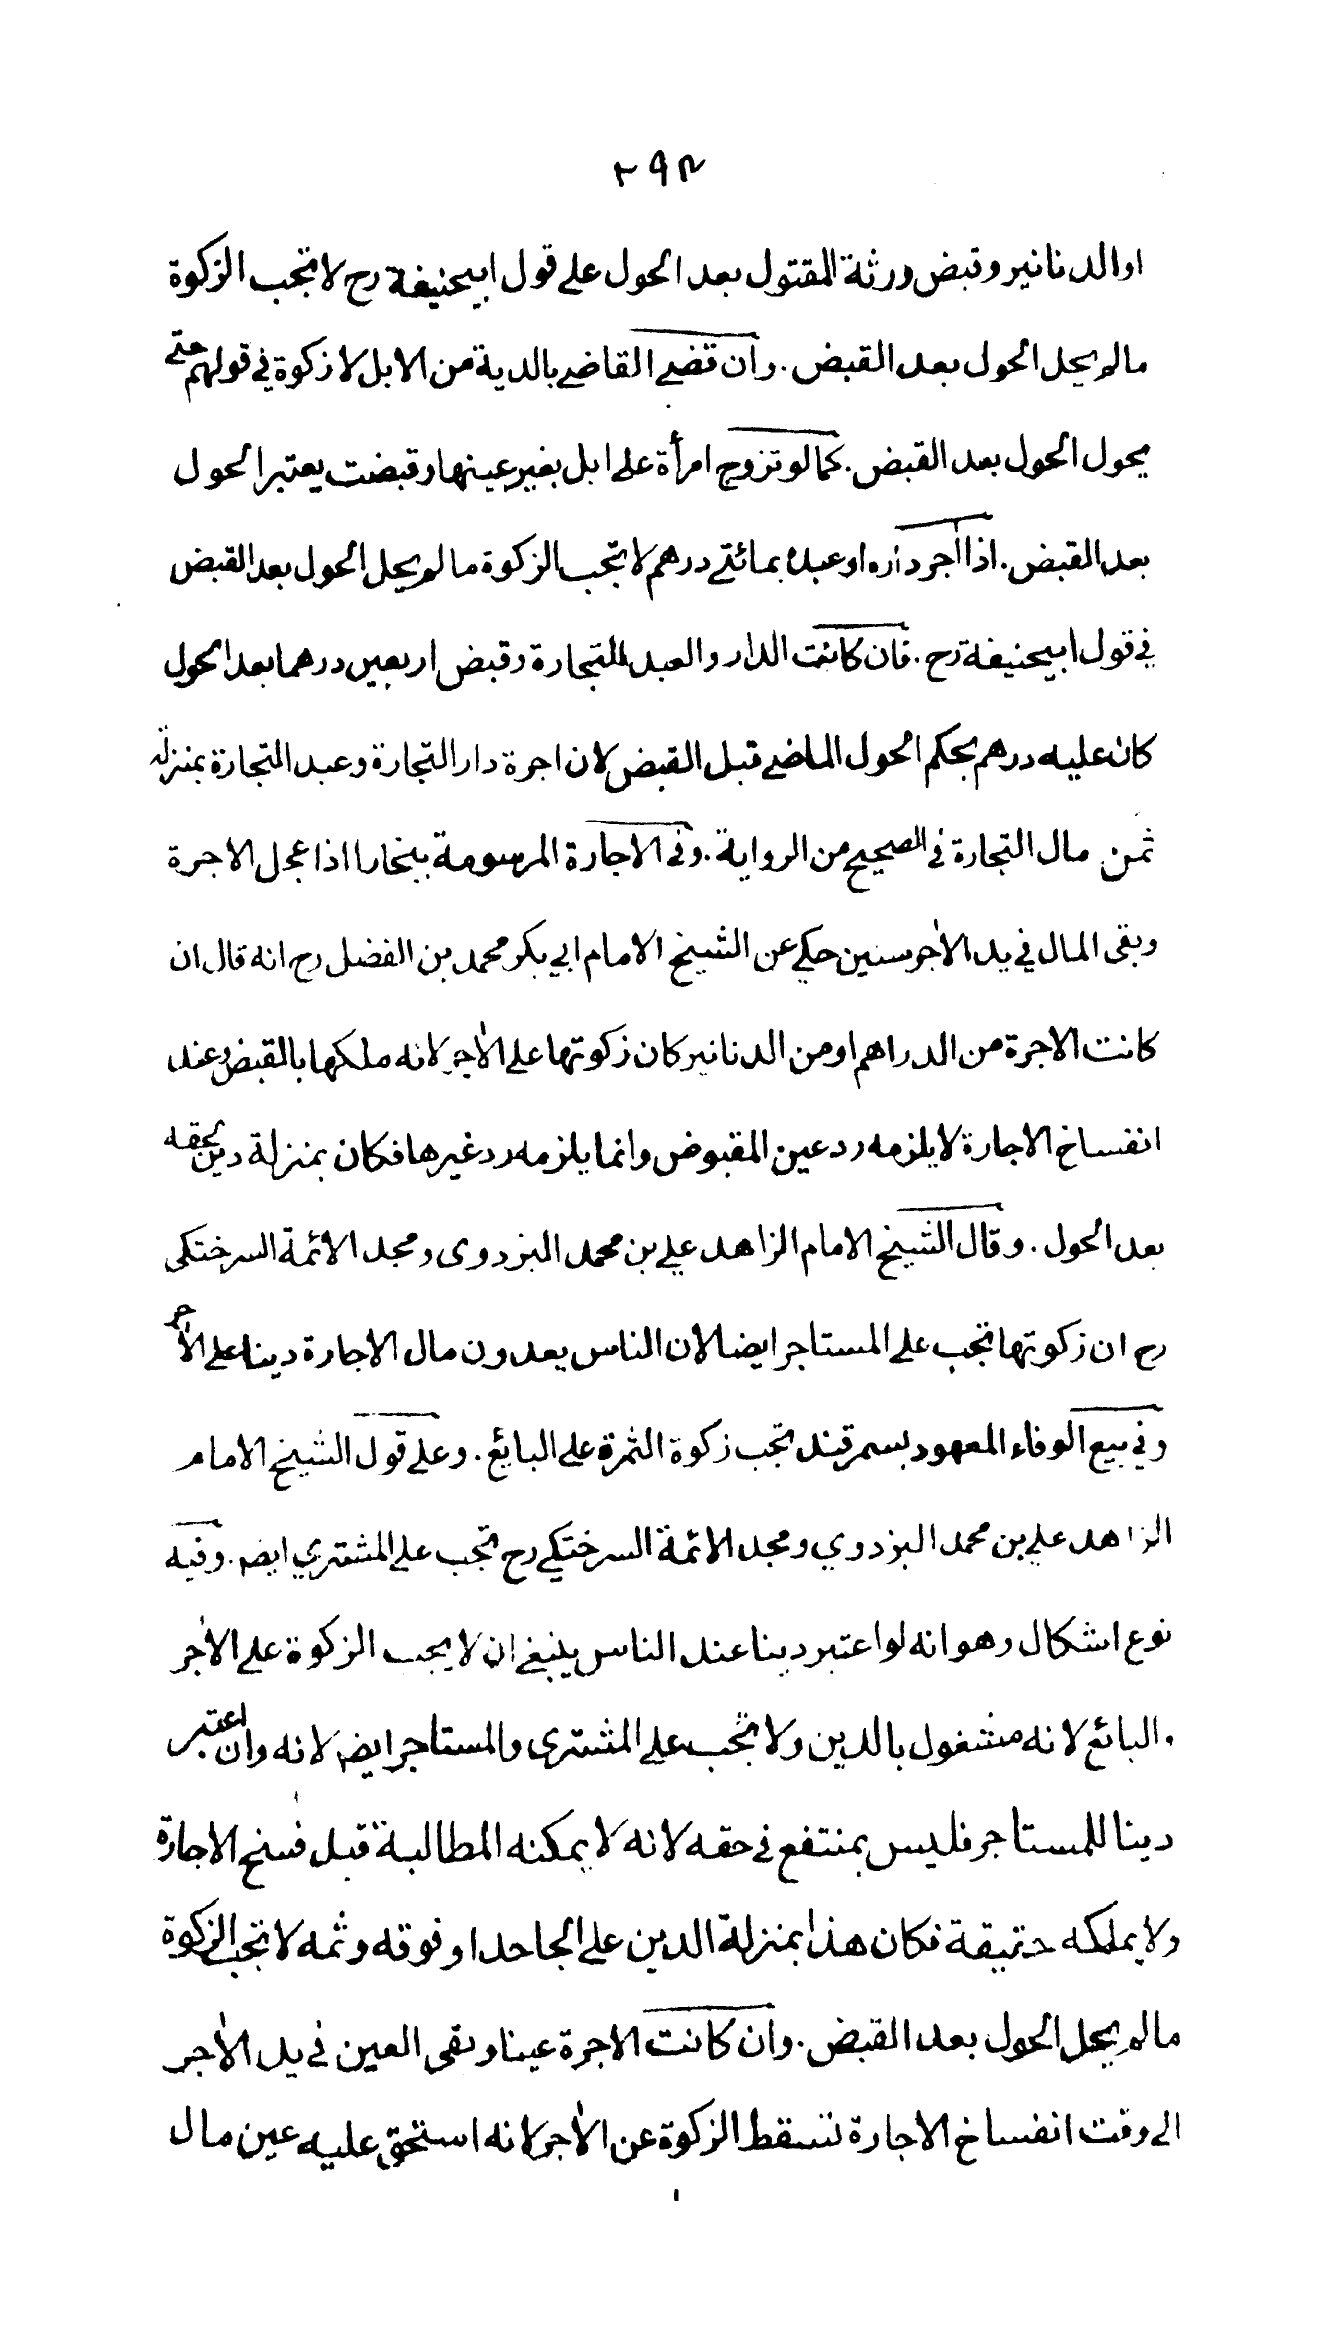 ٢٩٤
او الدنانير وقبض ورثة المقتول بعد الحول على قول ابيحنيفة رح لا تجب الزكوة
مالم يحل الحول بعد القبض . وان قضى القاضي بالدية من الابل لا زكوة في قولهم حتى
يحول الحول بعد القبض . كما لو تزوج امرأة على ابل بغير عينها وقبضت يعتبر الحول
بعد القبض . اذا آجر داره او عبده بمائتي درهم لا تجب الزكوة ما لم يحل الحول بعد القبض
في قول ابيحنيفة رح . فان كانت الدار والعبد للتجارة وقبض اربعين درهما بعد الحول
كان عليه درهم بحكم الحول الماضي قبل القبض لان اجرة دار التجارة وعبد التجارة بمنزلة
ثمن مال التجارة في الصحيح من الرواية . وفي الاجارة المرسومة ببخارا اذا عجل الاجرة
وبقى المال في يد الآجر سنين حكي عن الشيخ الامام ابي بكر محمد بن الفضل رح انه قال ان
كانت الاجرة من الدراهم او من الدنانير كان زكوتها على الآجر لانه ملكها بالقبض وعند
انفساخ الاجارة لا يلزمه رد عين المقبوض وانما يلزمه رد غيرها فكان بمنزلة دين لحقه
بعد الحول . وقال الشيخ الامام الزاهد علي بن محمد البزدوى ومجد الائمة السرختكى
رح ان زكوتها تجب على المستاجر ايضا لان الناس يعدون مال الاجارة دينا على الآجر
وفي بيع الوفاء المعهود بسمرقند تجب زكوة الثمرة على البايع . وعلى قول الشيخ الامام
الزاهد علي بن محمد البزدوي ومجد الائمة السرختكي رح تجب على المشتري ايضه . وفيه
نوع اشكال وهو انه لو اعتبر دينا عند الناس ينبغي ان لا يجب الزكوة على الآجر
والبائع لانه مشغول بالدين ولا تجب على المشترى والمستاجر ايضه لانه وان اعتبر
دينا للمستاجر فليس بمنتفع في حقه لانه لا يمكنه المطالبة قبل فسخ الاجارة
ولا يملكه حقيقة فكان هذا بمنزلة الدين على الجاحد او فوقه وثمه لا تجب الزكوة
ما لم يحل الحول بعد القبض . وان كانت الاجرة عينا وبقى العين في يد الآجر
الى وقت انفساخ الاجارة تسقط الزكوة عن الآجر لانه استحق عليه عين مال